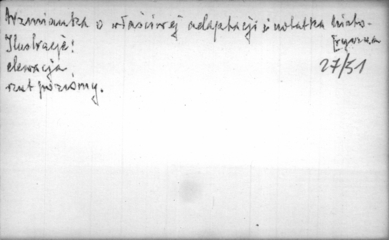 Wzmianka o właściwej adaptacji i notatka histo-
ryczna
Ilustracje:
27/51
elewacja
rzut poziomy.